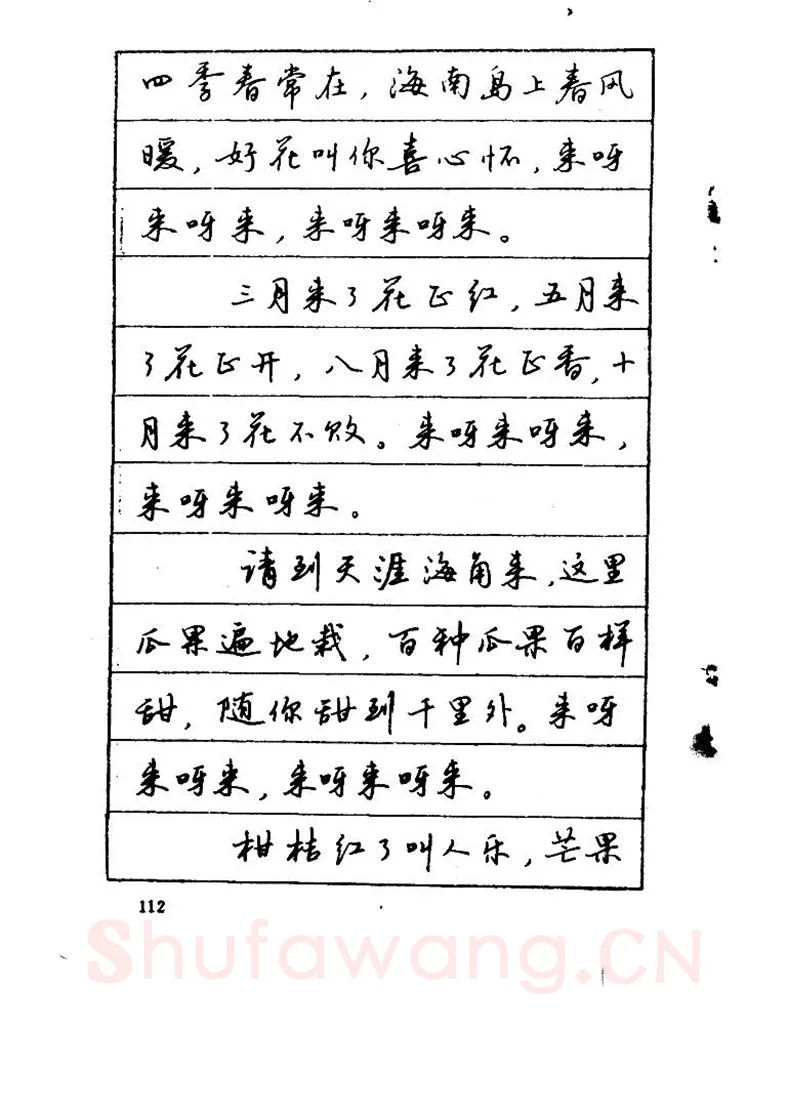 四季春常在，海南岛上春风
暖，好花叫你喜心怀，来呀
来呀来，来呀来呀来。
三月来了花正红，五月来
了花正开，八月来了花正香，十
月来了花不败。来呀来呀来，
来呀来呀来。
请到天涯海角来，这里
瓜果遍地栽，百种瓜果百样
甜，随你甜到千里外。来呀
来呀来，来呀来呀来。
柑桔红了叫人乐，芒果
112
Shufawang.CN